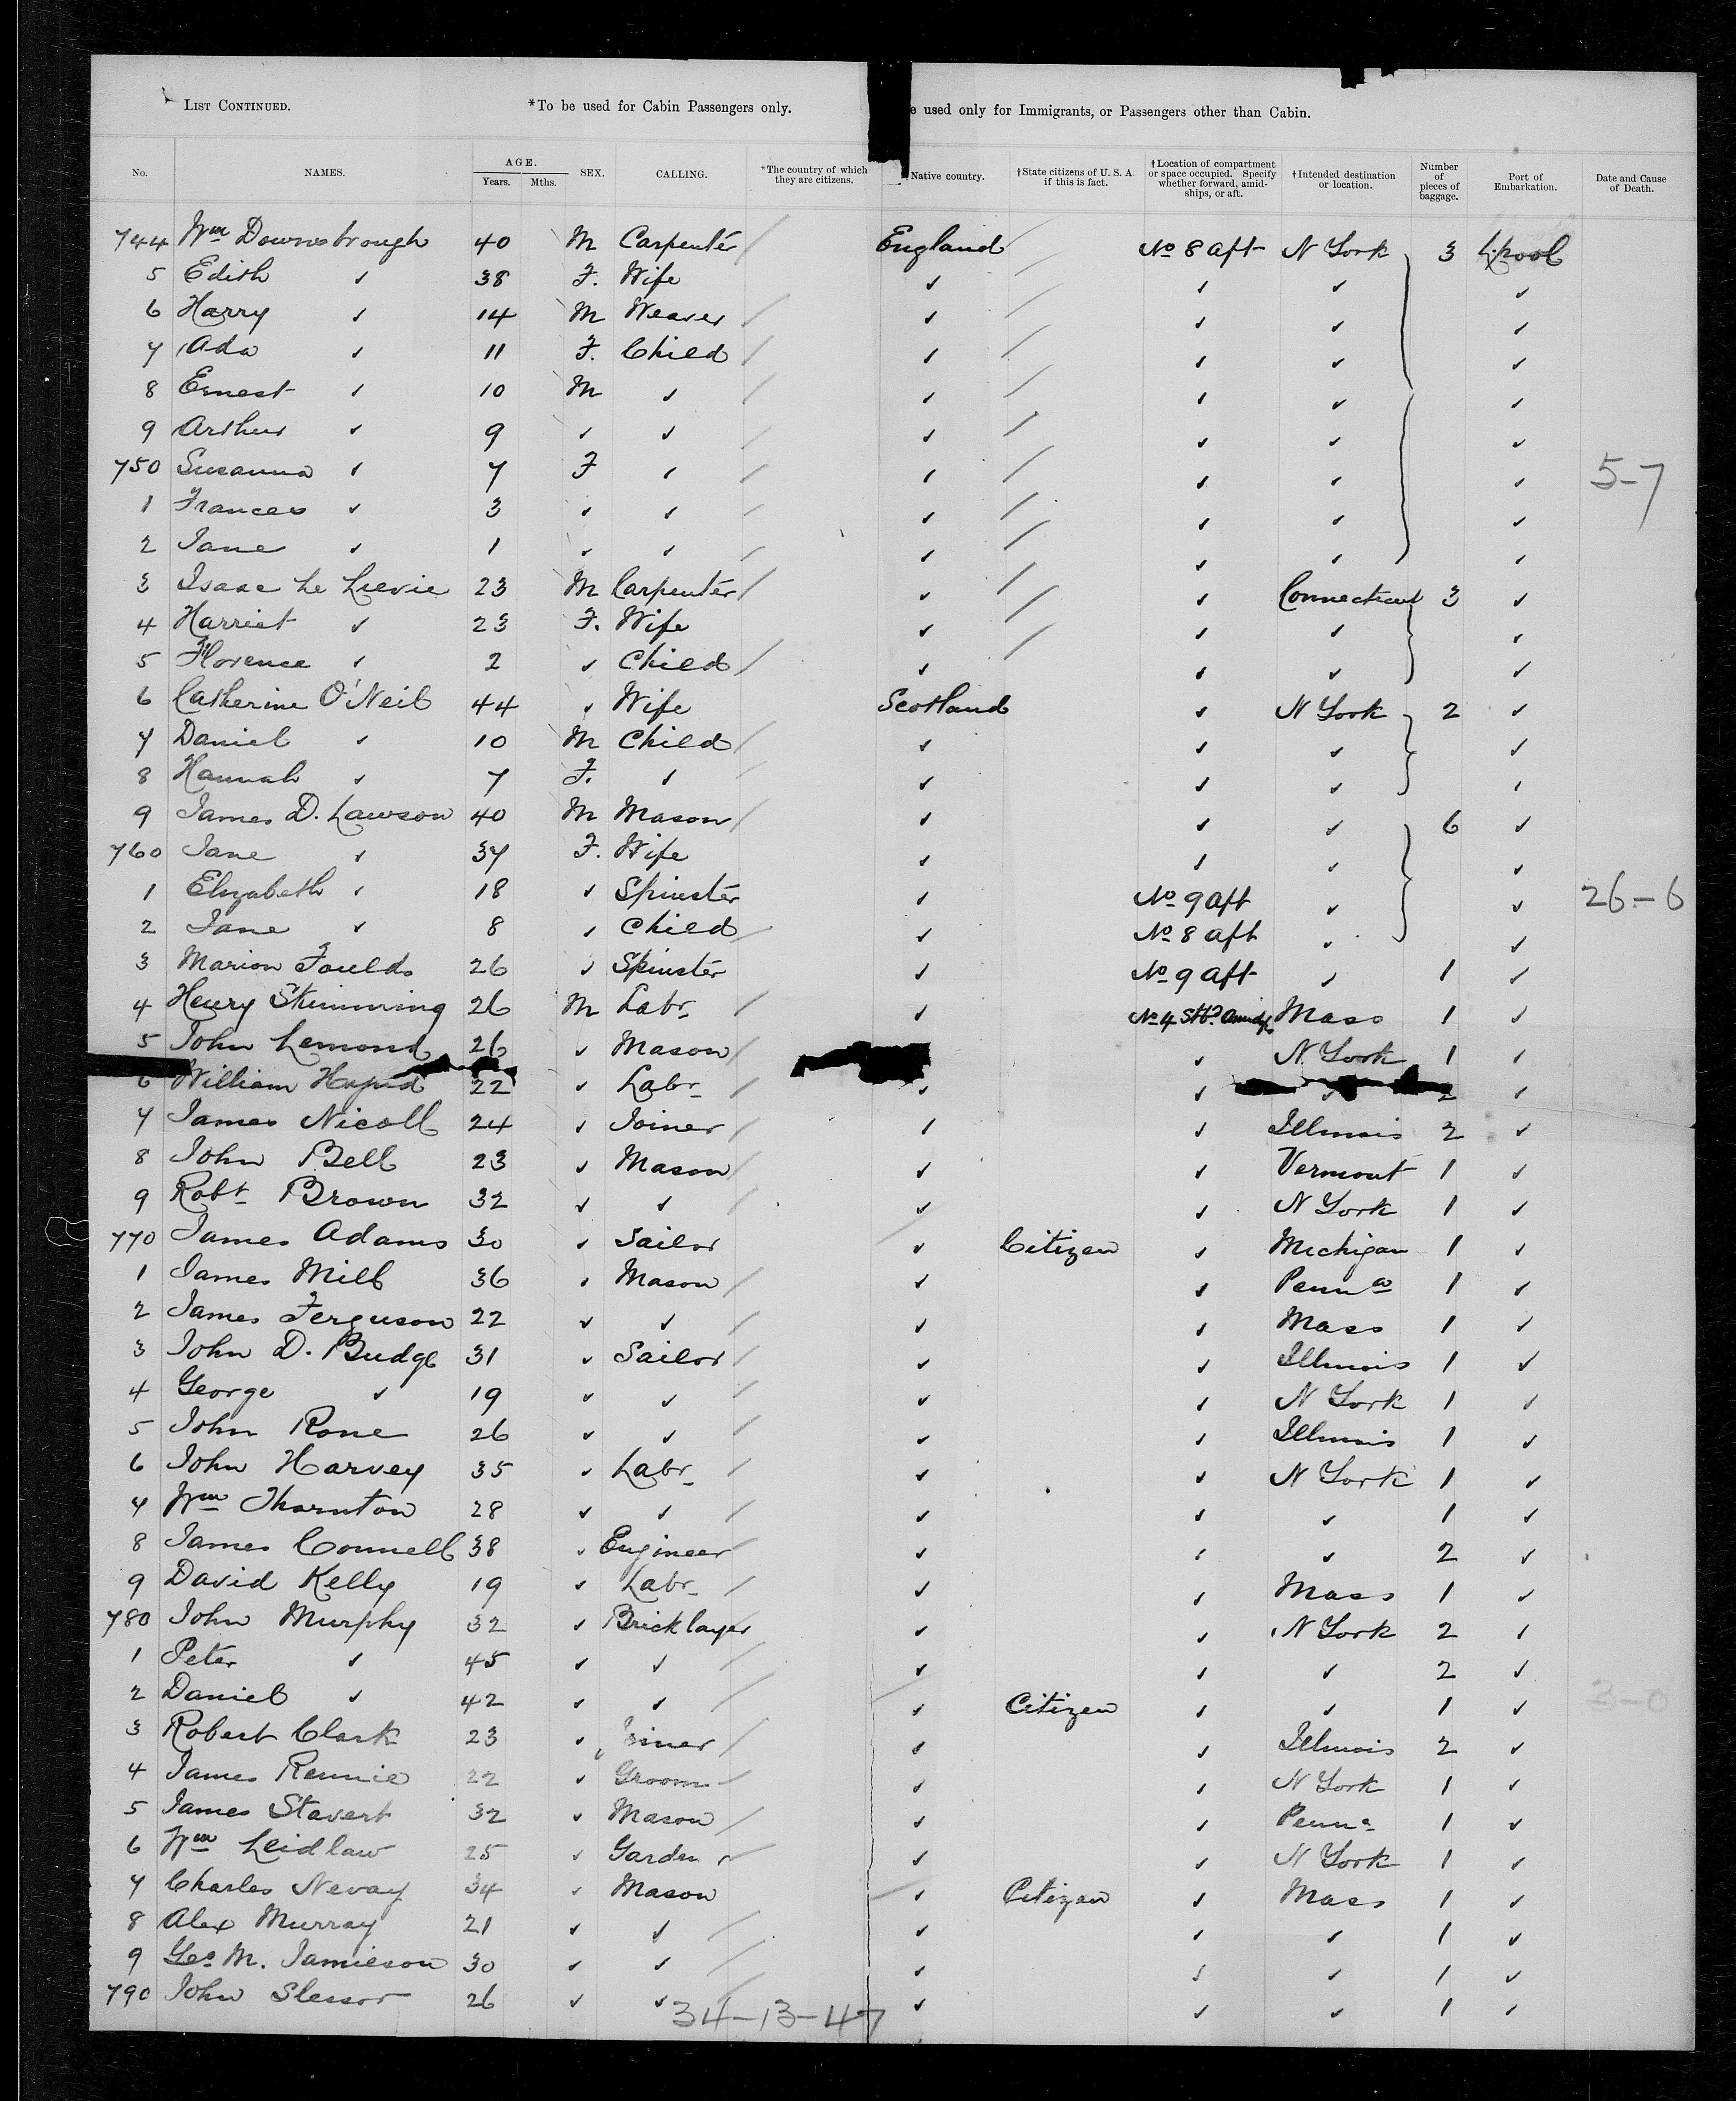 LIST CONTINUED. *To be used for Cabin Passengers only. e used only for Immigrants, or Passengers other than Cabin.
No. NAMES. AGE. Years. Mths. SEX. CALLING. *The country of which they are citizens. Native country. †State citizens of U. S. A. if this is fact. †Location of compartment or space occupied. Specify whether forward, amidships, or aft. †Intended destination or location. Number of pieces of baggage. Port of Embarkation. Date and Cause of Death.
744 Wm Downsbrough 40 M Carpenter / England / No 8 aft N York 3 L.pool
5 Edith ✓ 38 F. Wife ✓ / ✓ ✓ ✓
6 Harry ✓ 14 M Weaver / ✓ / ✓ ✓ ✓
7 Ada ✓ 11 F. Child / ✓ / ✓ ✓ ✓
8 Ernest ✓ 10 M ✓ / ✓ / ✓ ✓ ✓
9 Arthur ✓ 9 ✓ ✓ / ✓ / ✓ ✓ ✓
750 Susanna ✓ 7 F ✓ / ✓ / ✓ ✓ ✓ 5-7
1 Frances ✓ 3 ✓ ✓ / ✓ / ✓ ✓ ✓
2 Jane ✓ 1 ✓ ✓ / ✓ / ✓ ✓ ✓
3 Isaac Le Lievie 23 M Carpenter / ✓ / ✓ Connecticut 3 ✓
4 Harriet ✓ 23 F. Wife ✓ / ✓ ✓ ✓
5 Florence ✓ 2 ✓ Child / ✓ / ✓ ✓ ✓
6 Catherine O'Neil 44 ✓ Wife Scotland ✓ N York 2 ✓
7 Daniel ✓ 10 M Child / ✓ ✓ ✓ ✓
8 Hannah ✓ 7 F. ✓ / ✓ ✓ ✓ ✓
9 James D. Lawson 40 M Mason / ✓ ✓ ✓ 6 ✓
760 Jane ✓ 37 F. Wife ✓ ✓ ✓ ✓
1 Elizabeth ✓ 18 ✓ Spinster ✓ No 9 aft ✓ ✓ 26-6
2 Jane ✓ 8 ✓ Child / ✓ No 8 aft ✓ ✓
3 Marion Foulds 26 ✓ Spinster ✓ No 9 aft ✓ 1 ✓
4 Henry Skimming 26 M Labr / ✓ No 4 Mass 1 ✓
5 John Lemond 26 ✓ Mason / ✓ N York 1 ✓
6 William 22 ✓ Labr / ✓ ✓ ✓ 2 ✓
7 James Nicoll 24 ✓ Joiner / ✓ ✓ Illinois 2 ✓
8 John Bell 23 ✓ Mason / ✓ ✓ Vermont 1 ✓
9 Robt Brown 32 ✓ ✓ / ✓ ✓ N York 1 ✓
770 James Adams 30 ✓ Sailor ✓ Citizen ✓ Michigan 1 ✓
1 James Mill 36 ✓ Mason / ✓ ✓ Penna 1 ✓
2 James Ferguson 22 ✓ ✓ / ✓ ✓ Mass 1 ✓
3 John D. Budge 31 ✓ Sailor / ✓ ✓ Illinois 1 ✓
4 George ✓ 19 ✓ ✓ / ✓ ✓ N York 1 ✓
5 John Rone 26 ✓ ✓ / ✓ ✓ Illinois 1 ✓
6 John Harvey 35 ✓ Labr / ✓ ✓ N York 1 ✓
7 Wm Thornton 28 ✓ ✓ / ✓ ✓ ✓ 1 ✓
8 James Connell 38 ✓ Engineer / ✓ ✓ ✓ 2 ✓
9 David Kelly 19 ✓ Labr / ✓ ✓ Mass 1 ✓
780 John Murphy 32 ✓ Bricklayer ✓ ✓ N York 2 ✓
1 Peter ✓ 45 ✓ ✓ / ✓ ✓ ✓ 2 ✓
2 Daniel ✓ 42 ✓ ✓ / ✓ Citizen ✓ ✓ 1 ✓ 3-0
3 Robert Clark 23 ✓ Joiner / ✓ ✓ Illinois 2 ✓
4 James Rennie 22 ✓ Groom / ✓ ✓ N York 1 ✓
5 James Stavert 32 ✓ Mason / ✓ ✓ Penna 1 ✓
6 Wm Leidlaw 25 ✓ Garden r / ✓ ✓ N York 1 ✓
7 Charles Nevay 34 ✓ Mason ✓ Citizen ✓ Mass 1 ✓
8 Alex Murray 21 ✓ ✓ / ✓ ✓ ✓ 1 ✓
9 Geo M. Jamieson 30 ✓ ✓ / ✓ ✓ ✓ 1 ✓
790 John Slessor 26 ✓ ✓ / ✓ ✓ ✓ 1 ✓
34-13-47